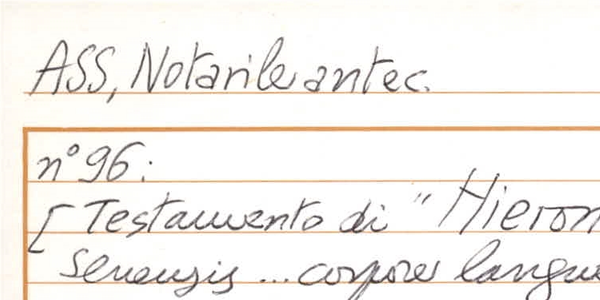 ASS, Notarile antec.
n° 96:
[Testamento di "Hieron
Senensis ... corpore langue